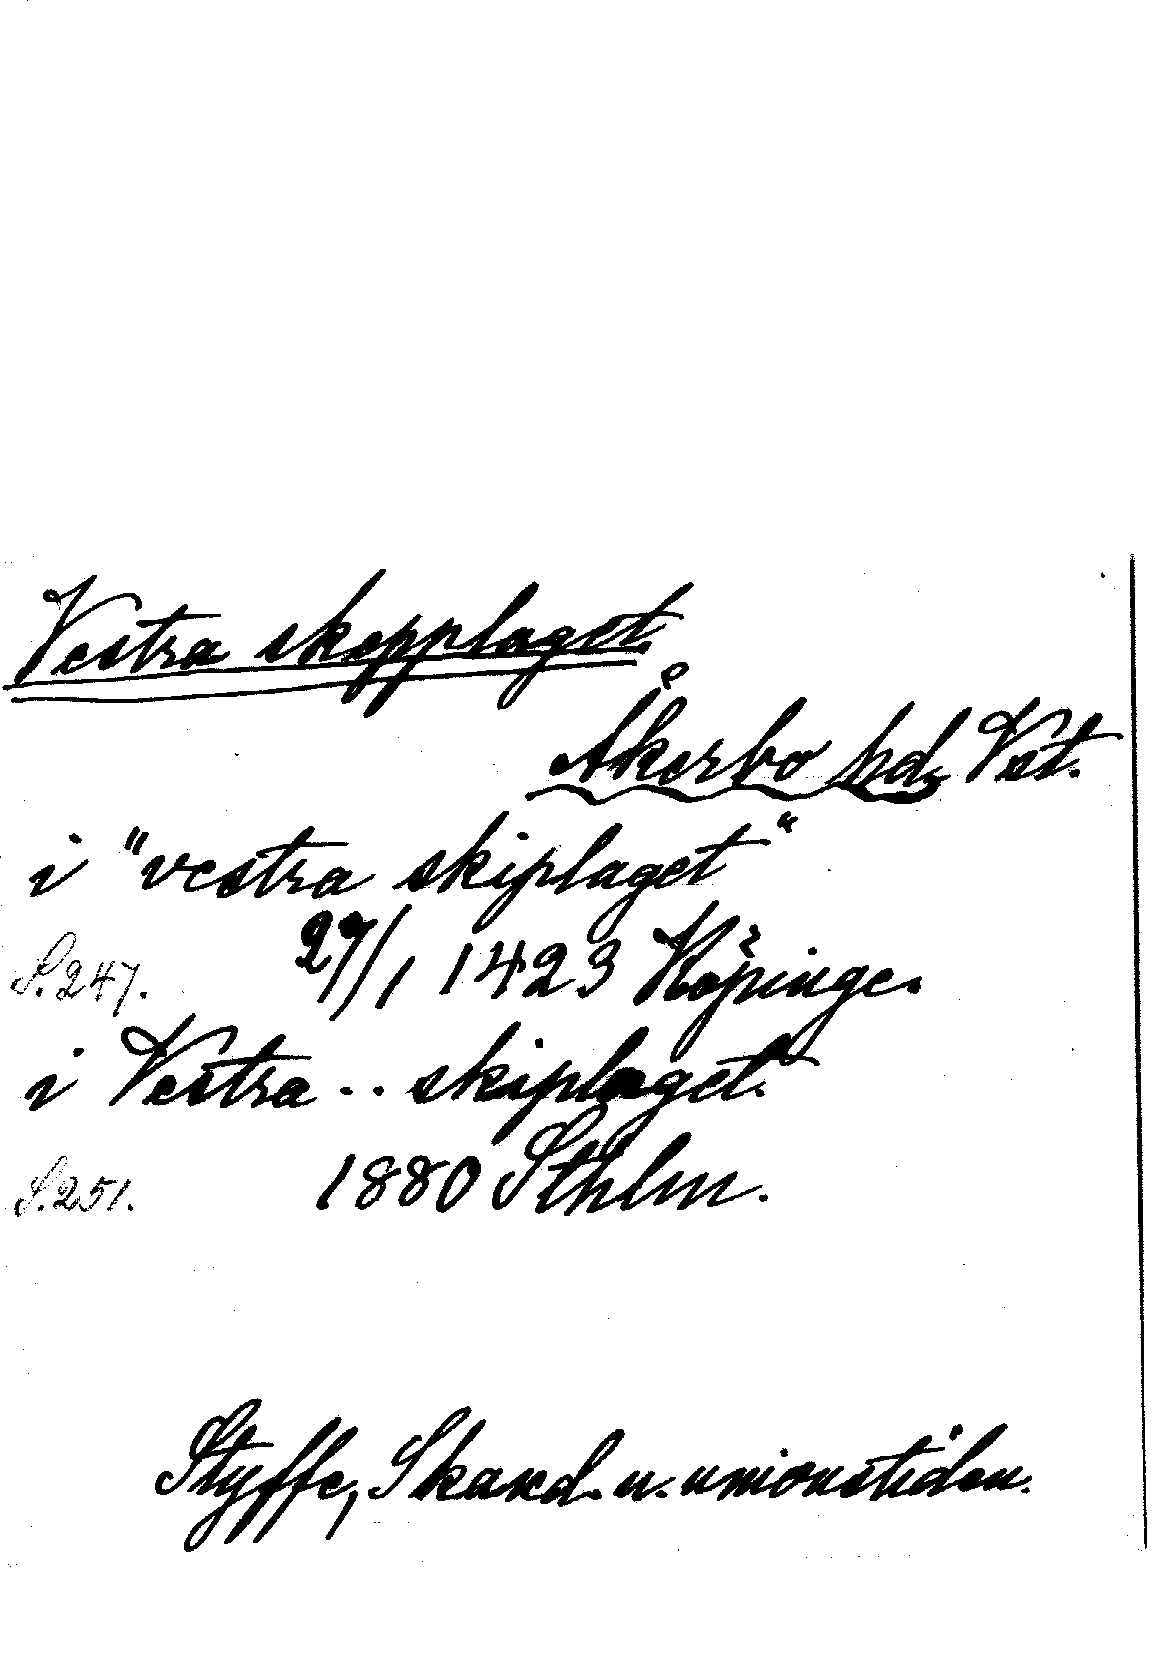 Vestra skepplaget.
Åkerbo hd. Vst.
i "vestra skiplaget"
S. 247. 27/1 1423 Köpinge.
i Vestra .. skiplaget.
S. 251. 1880 Sthlm.
Styffe, Skand. u. unionstiden.